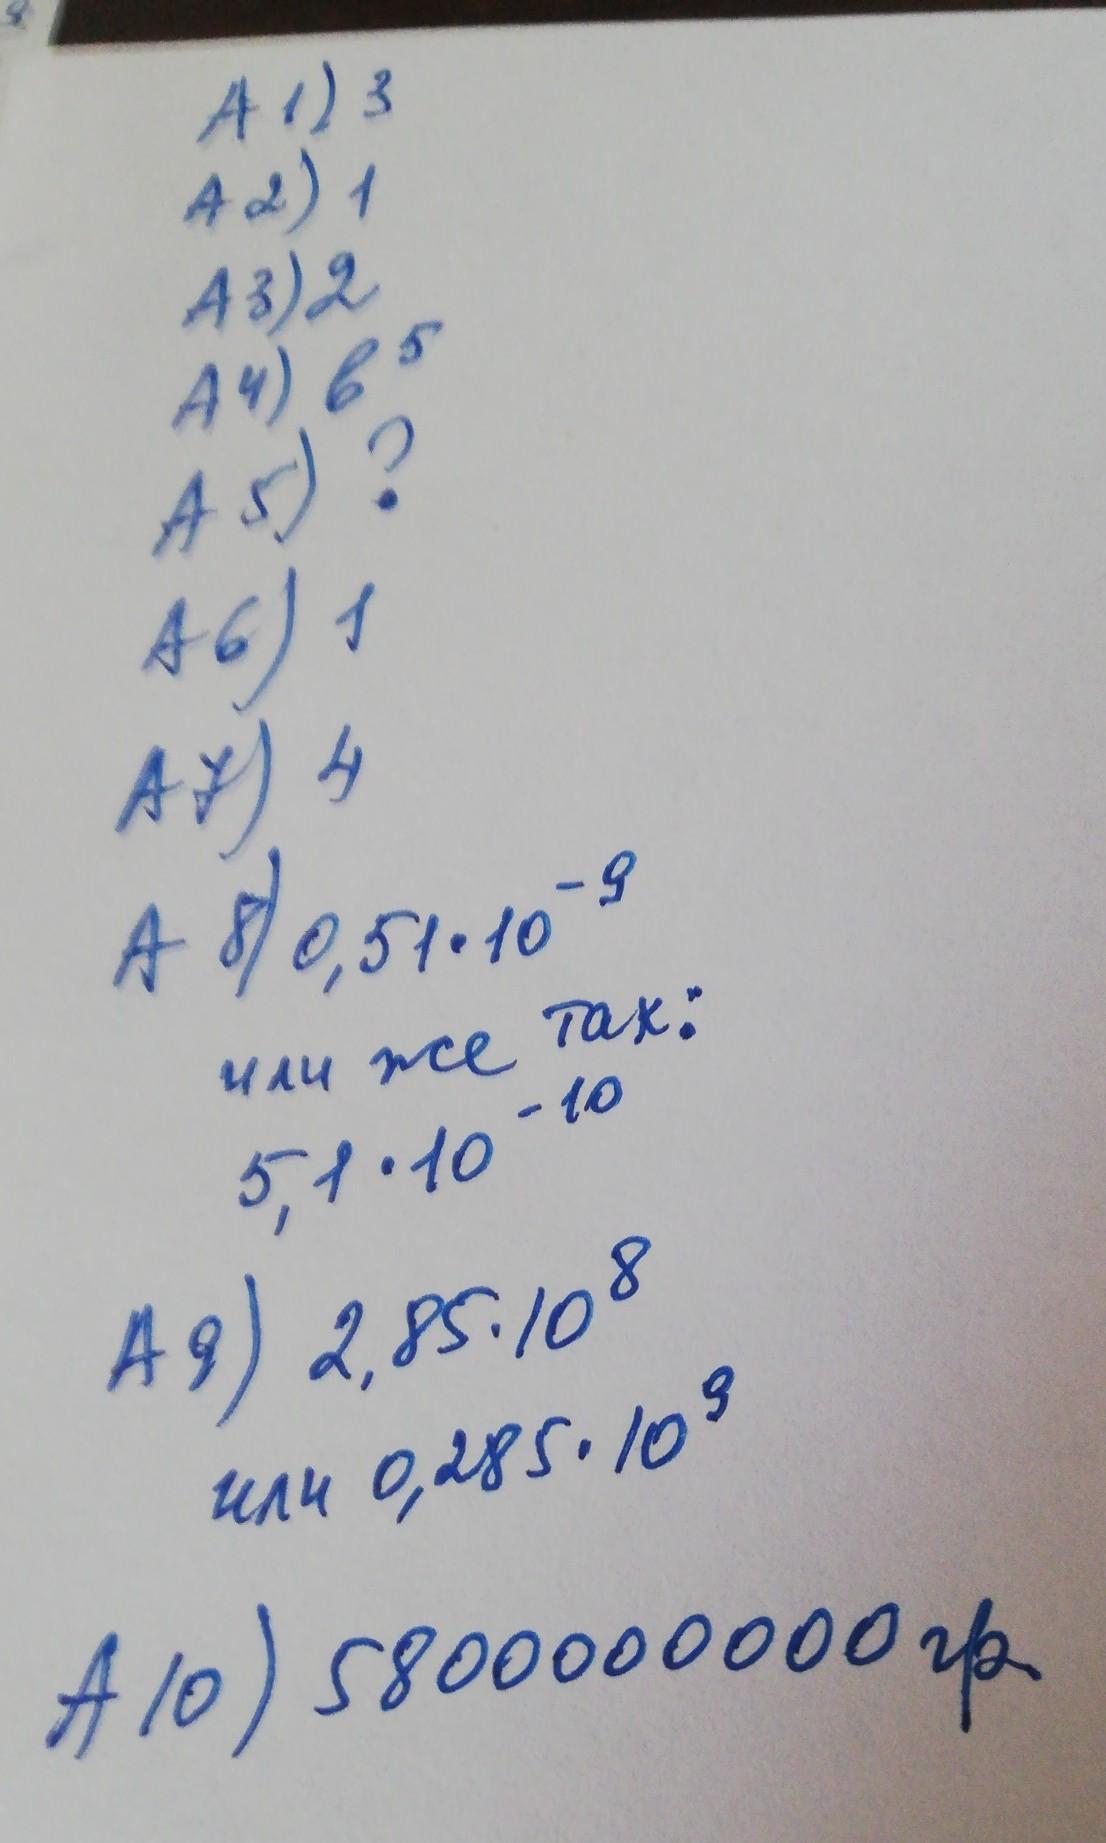 А 1) 3
А 2) 1
А 3) 2
А 4) в⁵
А 5) ?
А 6) 1
А 7) 4
А 8) 0,51·10⁻⁹
или же так:
5,1·10⁻¹⁰
А 9) 2,85·10⁸
или 0,285·10⁹
А 10) 5800000000 гр